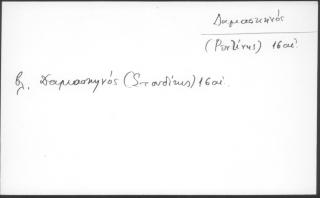 Δαμασκηνός
(Ρεντίνης) 16 αἰ.
βλ. Δαμασκηνός (Στουδίτης) 16 αἰ.